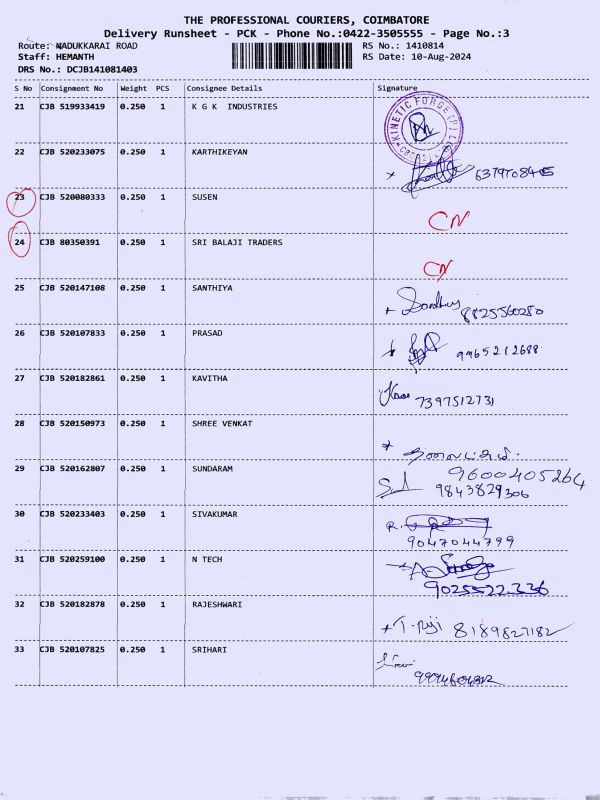 THE PROFESSIONAL COURIERS, COIMBATORE
Delivery Runsheet - PCK - Phone No.:0422-3505555 - Page No.:3
Route: NADUKKARAI ROAD RS No.: 1410814
Staff: HEMANTH RS Date: 10-Aug-2024
DRS No.: DCJB141081403
S No Consignment No Weight PCS Consignee Details Signature
21 CJB 519933419 0.250 1 K G K INDUSTRIES KINETIC FORGE (P) L
22 CJB 520233075 0.250 1 KARTHIKEYAN
23 CJB 520080333 0.250 1 SUSEN CN
24 CJB 80350391 0.250 1 SRI BALAJI TRADERS CN
25 CJB 520147108 0.250 1 SANTHIYA 8825560280
26 CJB 520107833 0.250 1 PRASAD 9965212688
27 CJB 520182861 0.250 1 KAVITHA 7397512731
28 CJB 520150973 0.250 1 SHREE VENKAT
9600405264
29 CJB 520162807 0.250 1 SUNDARAM 9843829306
30 CJB 520233403 0.250 1 SIVAKUMAR R.
9047044799
31 CJB 520259100 0.250 1 N TECH
9025522336
32 CJB 520182878 0.250 1 RAJESHWARI 8189827182
33 CJB 520107825 0.250 1 SRIHARI